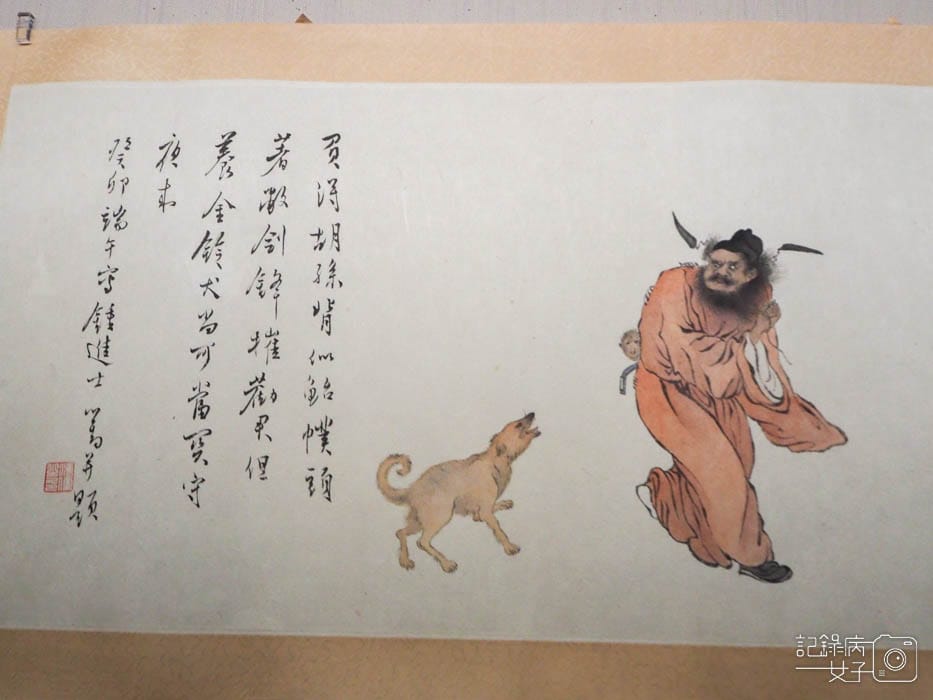 買得胡孫背似鮐幞頭
著敝劍鋒摧勸君但
養金鈴犬尚可當守
夜來
癸卯端午寫鍾進士 心畬并題
記錄病
女子